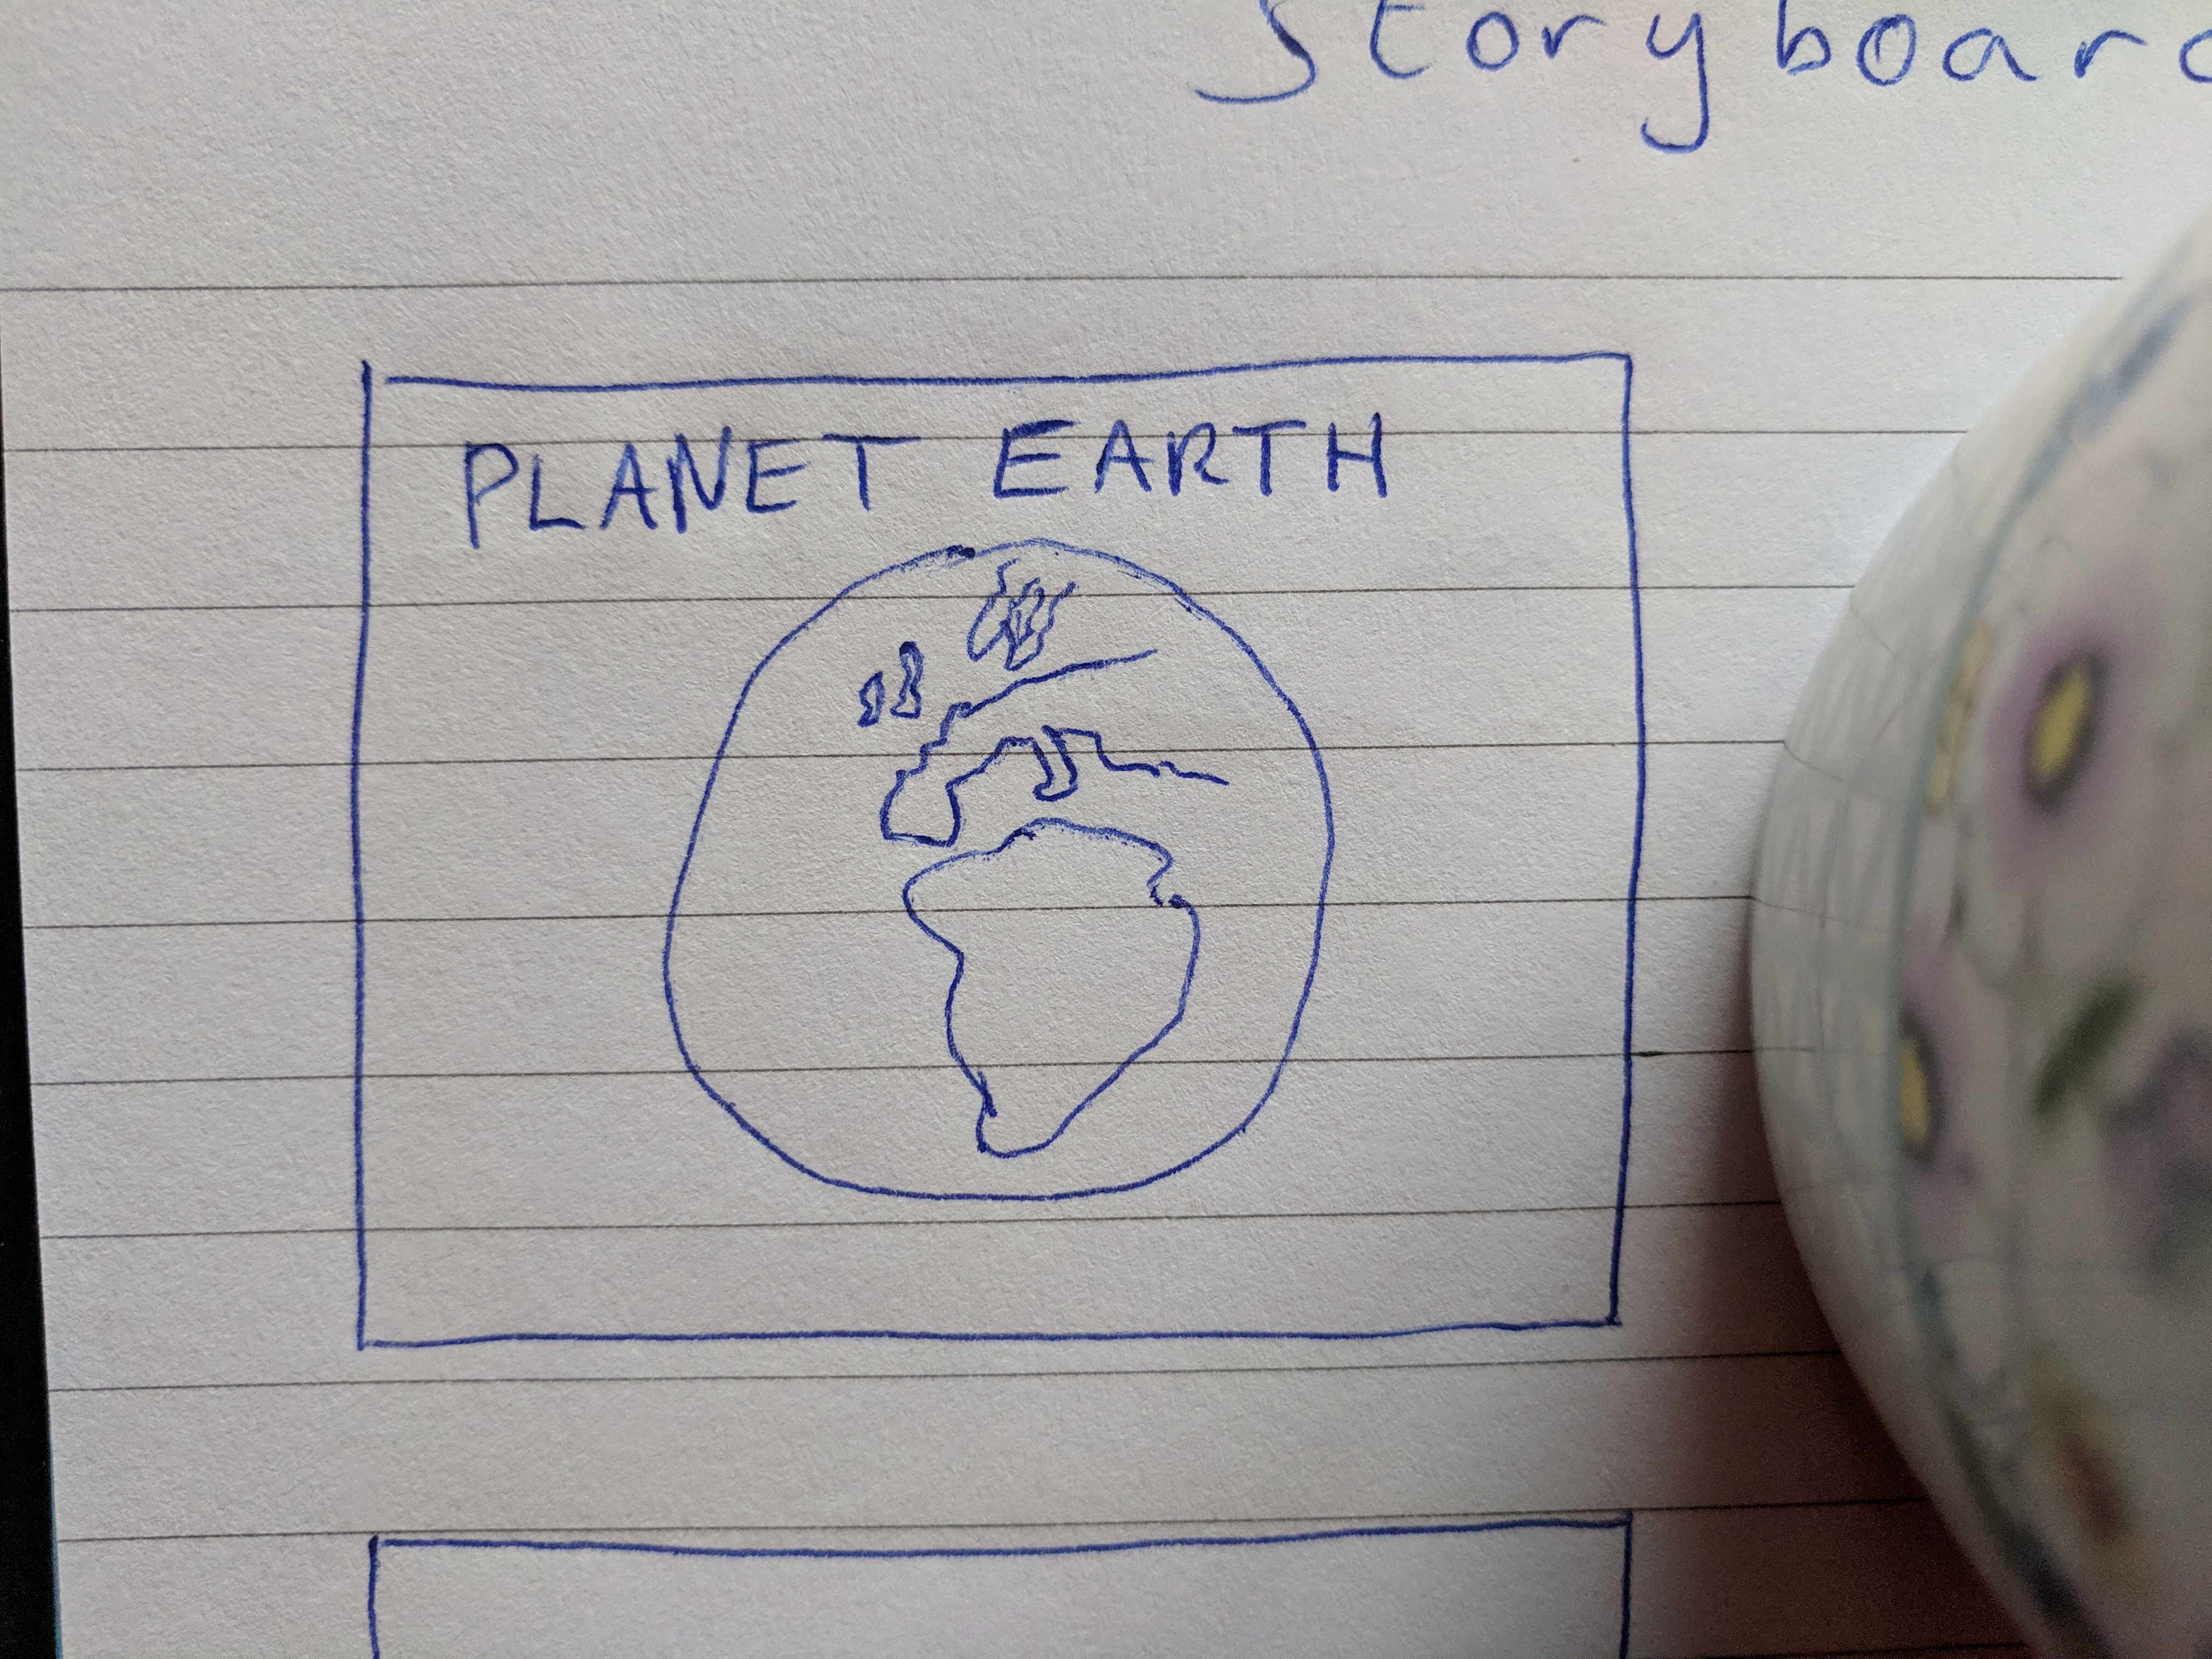 Storyboard
PLANET EARTH